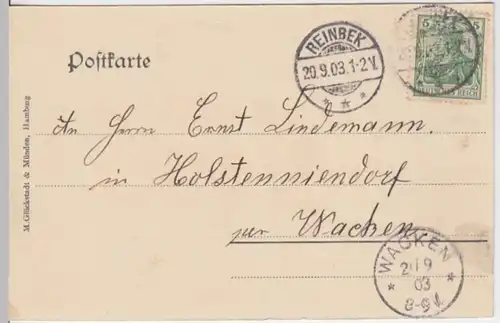 Postkarte
REINBEK
20.9.03.1-2V.
5
An Herrn Ernst Lindemann
in Holstenniendorf
per Wacken
WACKEN
21 9
03
8-9V.
M.Glückstadt & Münden, Hamburg